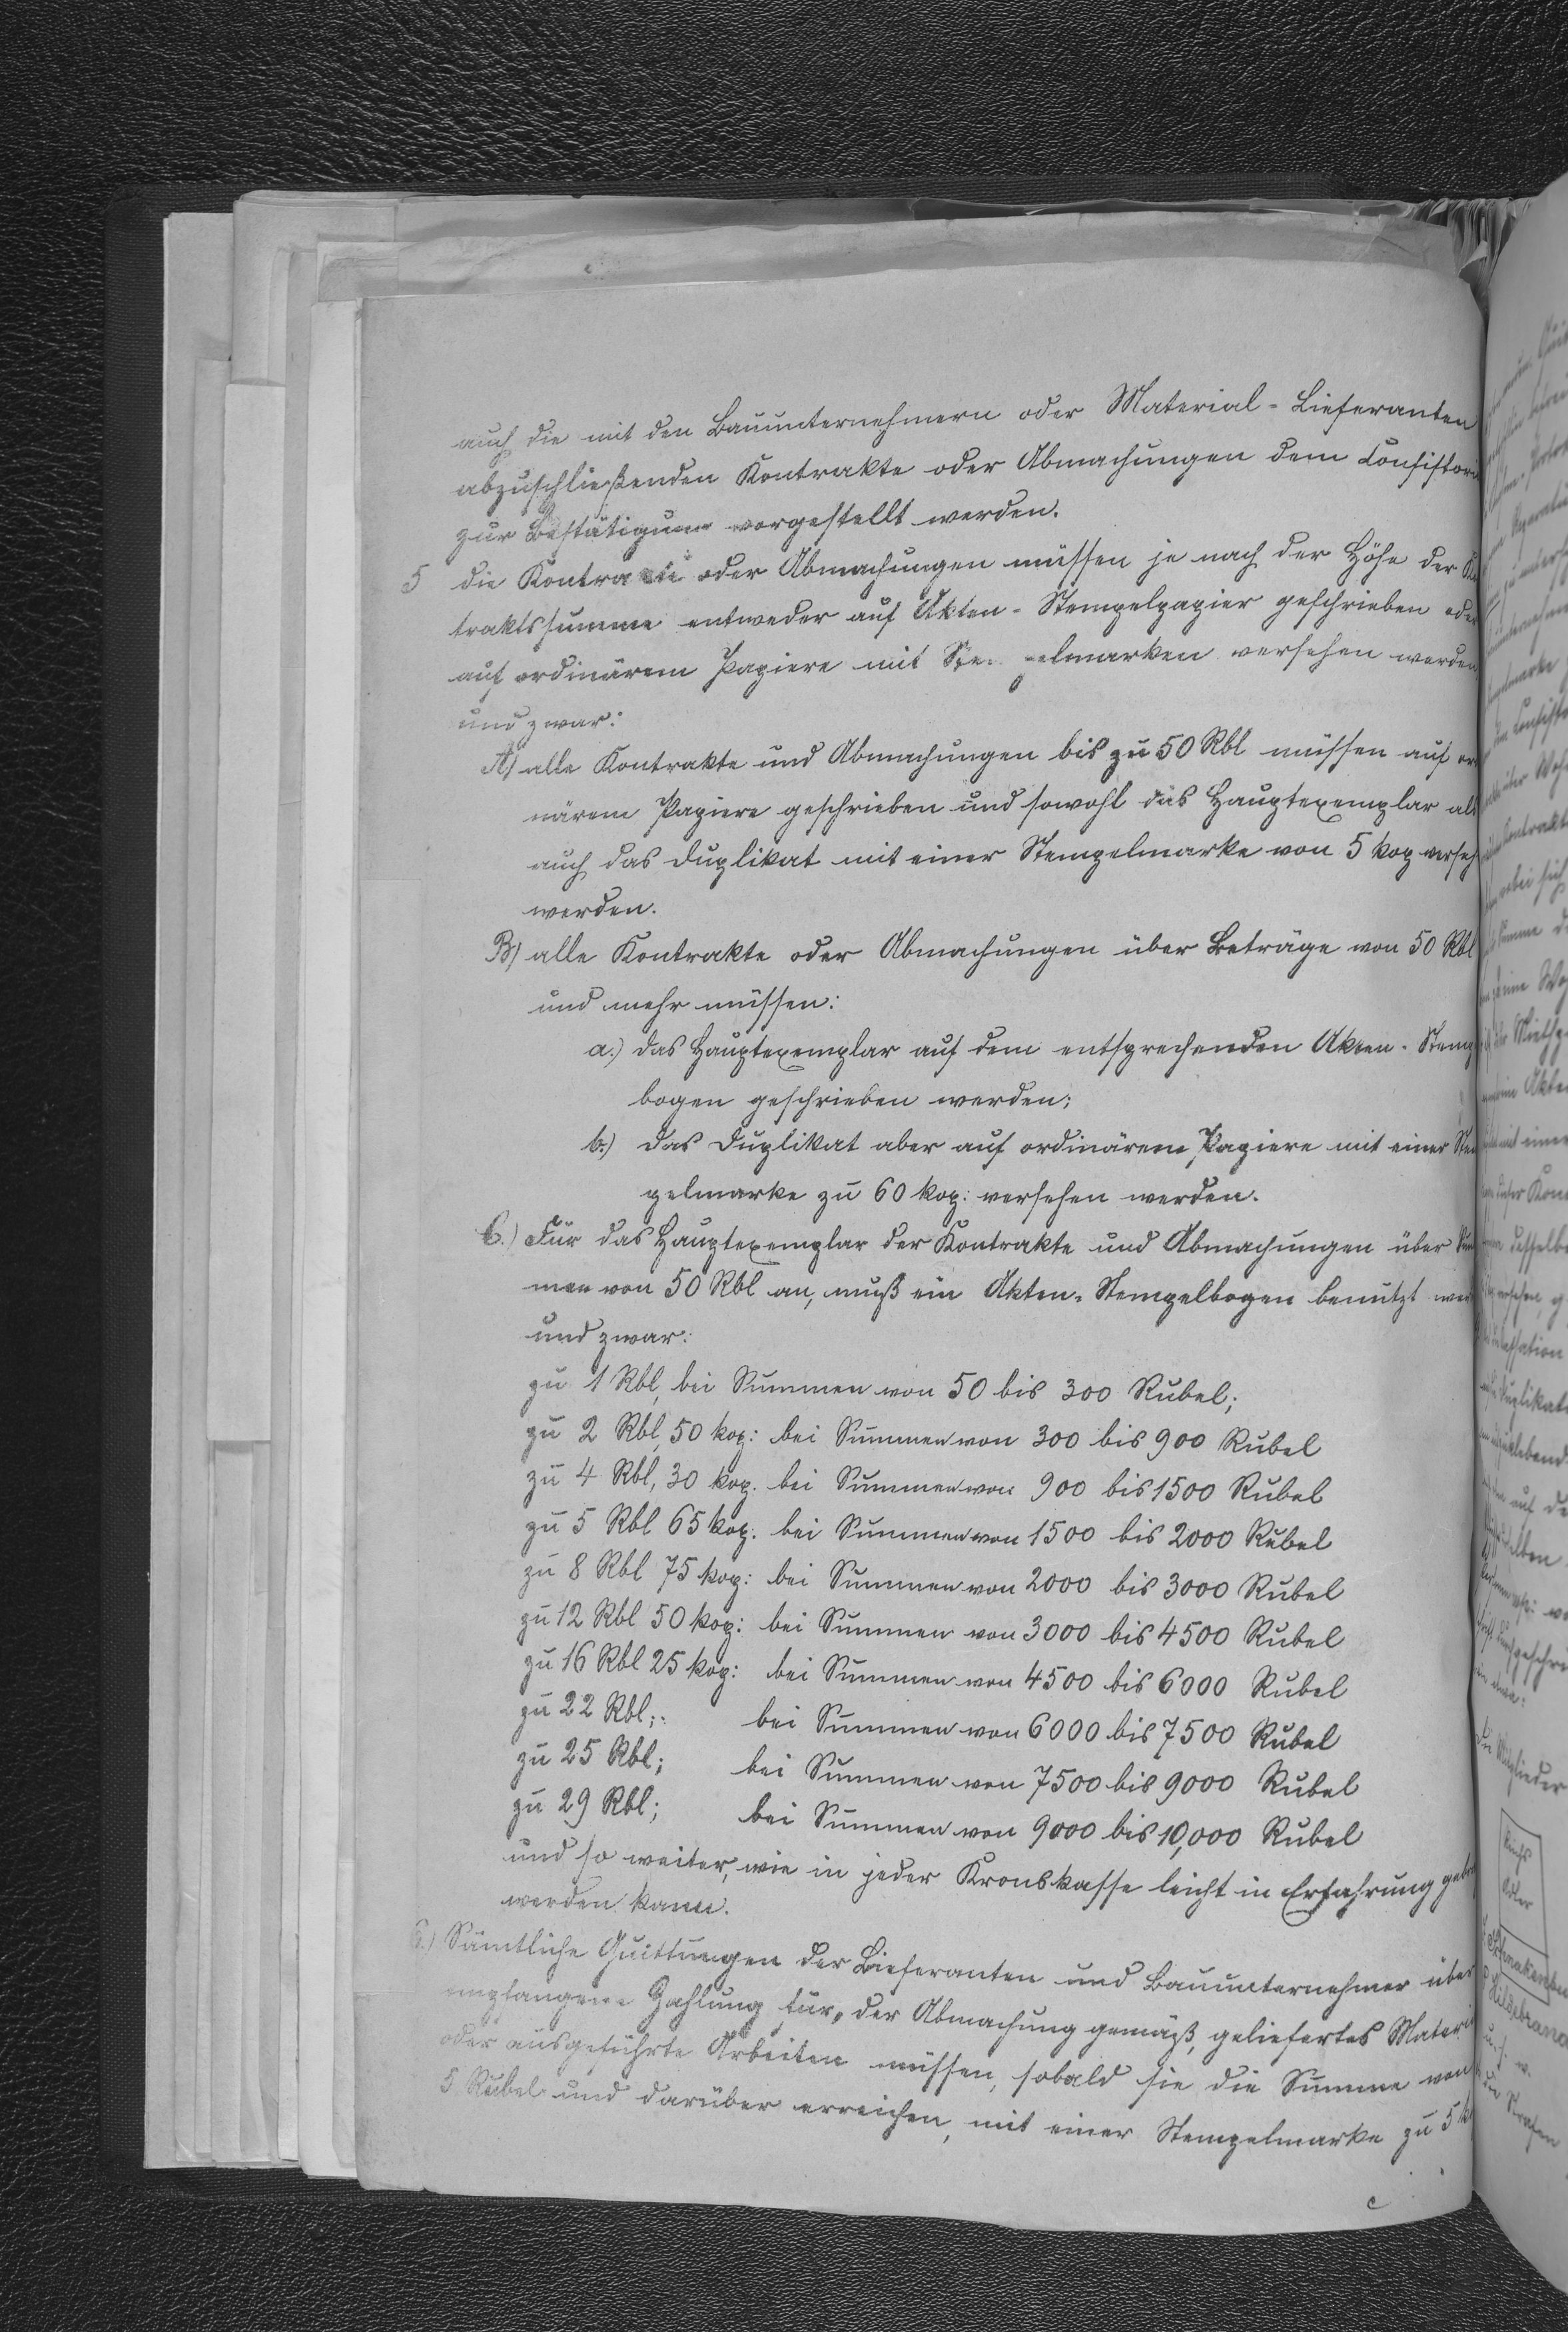 auch die mit den Bauunternehmern oder Material-Lieferanten
abzuschließenden Kontrakte oder Abmachungen dem Consistori
zur Bestätigung vorgestellt werden.
5 die Kontrakte oder Abmachungen müssen je nach der Höhe der Ko
traktssumme entweder auf Akten-Stempelpapier geschrieben oder
auf ordinärem Papiere mit Stempelmarken versehen werden
und zwar:
A) alle Kontrakte und Abmachungen bis zu 50 Rbl müssen auf or
närem Papiere geschrieben und sowohl das Hauptexemplar als
auch das Duplikat mit einer Stempelmarke von 5 kop verseh
werden.
B) alle Kontrakte oder Abmachungen über Beträge von 50 Rbl
und mehr müssen:
a.) das Hauptexemplar auf dem entsprechenden Akten-Stemp
bogen geschrieben werden;
b.) das Duplikat aber auf ordinärem Papiere mit einer Stem
pelmarke zu 60 kop: versehen werden.
C.) Für das Hauptexemplar der Kontrakte und Abmachungen über Sum
men von 50 Rbl an, muß ein Akten-Stempelbogen benutzt wer
und zwar:
zu 1 Rbl, bei Summen von 50 bis 300 Rubel;
zu 2 Rbl, 50 kop: bei Summen von 300 bis 900 Rubel
zu 4 Rbl, 30 kop. bei Summen von 900 bis 1500 Rubel
zu 5 Rbl 65 kop. bei Summen von 1500 bis 2000 Rubel
zu 8 Rbl 75 kop: bei Summen von 2000 bis 3000 Rubel
zu 12 Rbl 50 kop: bei Summen von 3000 bis 4500 Rubel
zu 16 Rbl 25 kop: bei Summen von 4500 bis 6000 Rubel
zu 22 Rbl; bei Summen von 6000 bis 7500 Rubel
zu 25 Rbl; bei Summen von 7500 bis 9000 Rubel
zu 29 Rbl; bei Summen von 9000 bis 10,000 Rubel
und so weiter, wie in jeder Kronskasse leicht in Erfahrung gebra
werden kann.
6.) Sämtliche Quittungen der Lieferanten und Bauunternehmer über
empfangene Zahlung für, der Abmachung gemäß, geliefertes Materi
oder ausgeführte Arbeiten müssen, sobald sie die Summe von
5 Rubel und darüber erreichen, mit einer Stempelmarke zu 5 k